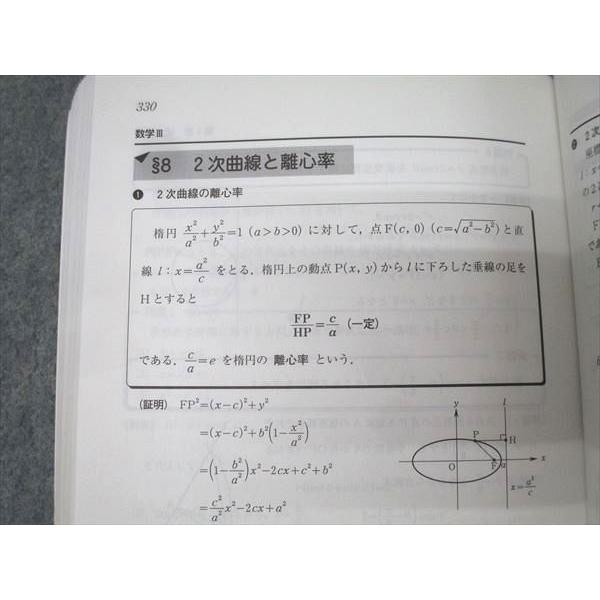 330
数学Ⅲ
§8 2次曲線と離心率
❶ 2次曲線の離心率
楕円 x²/a²+y²/b²=1 (a>b>0) に対して，点F(c, 0) (c=√(a²−b²)) と直
線 l：x=a²/c をとる．楕円上の動点P(x, y)から l に下ろした垂線の足を
Hとすると
FP/HP=c/a (一定)
である．c/a=e を楕円の 離心率 という．
(証明) FP²=(x−c)²+y²
=(x−c)²+b²(1−x²/a²)
=(1−b²/a²)x²−2cx+c²+b²
=c²/a² x²−2cx+a²
y
l
P
H
O
F
a
x
x=a²/c
❷ 2次